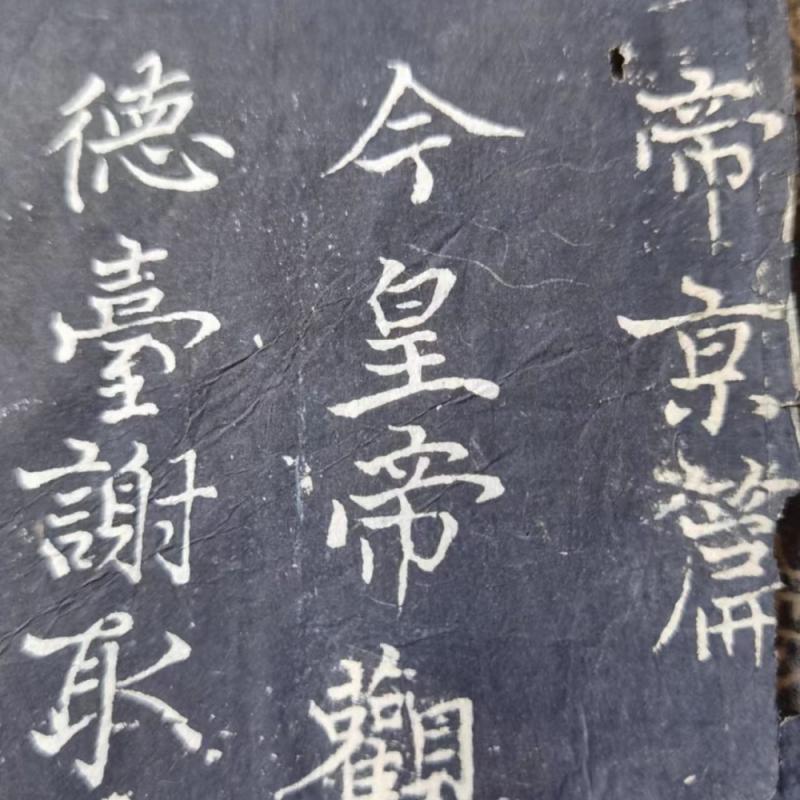 帝京篇
今皇帝觀
德臺謝取